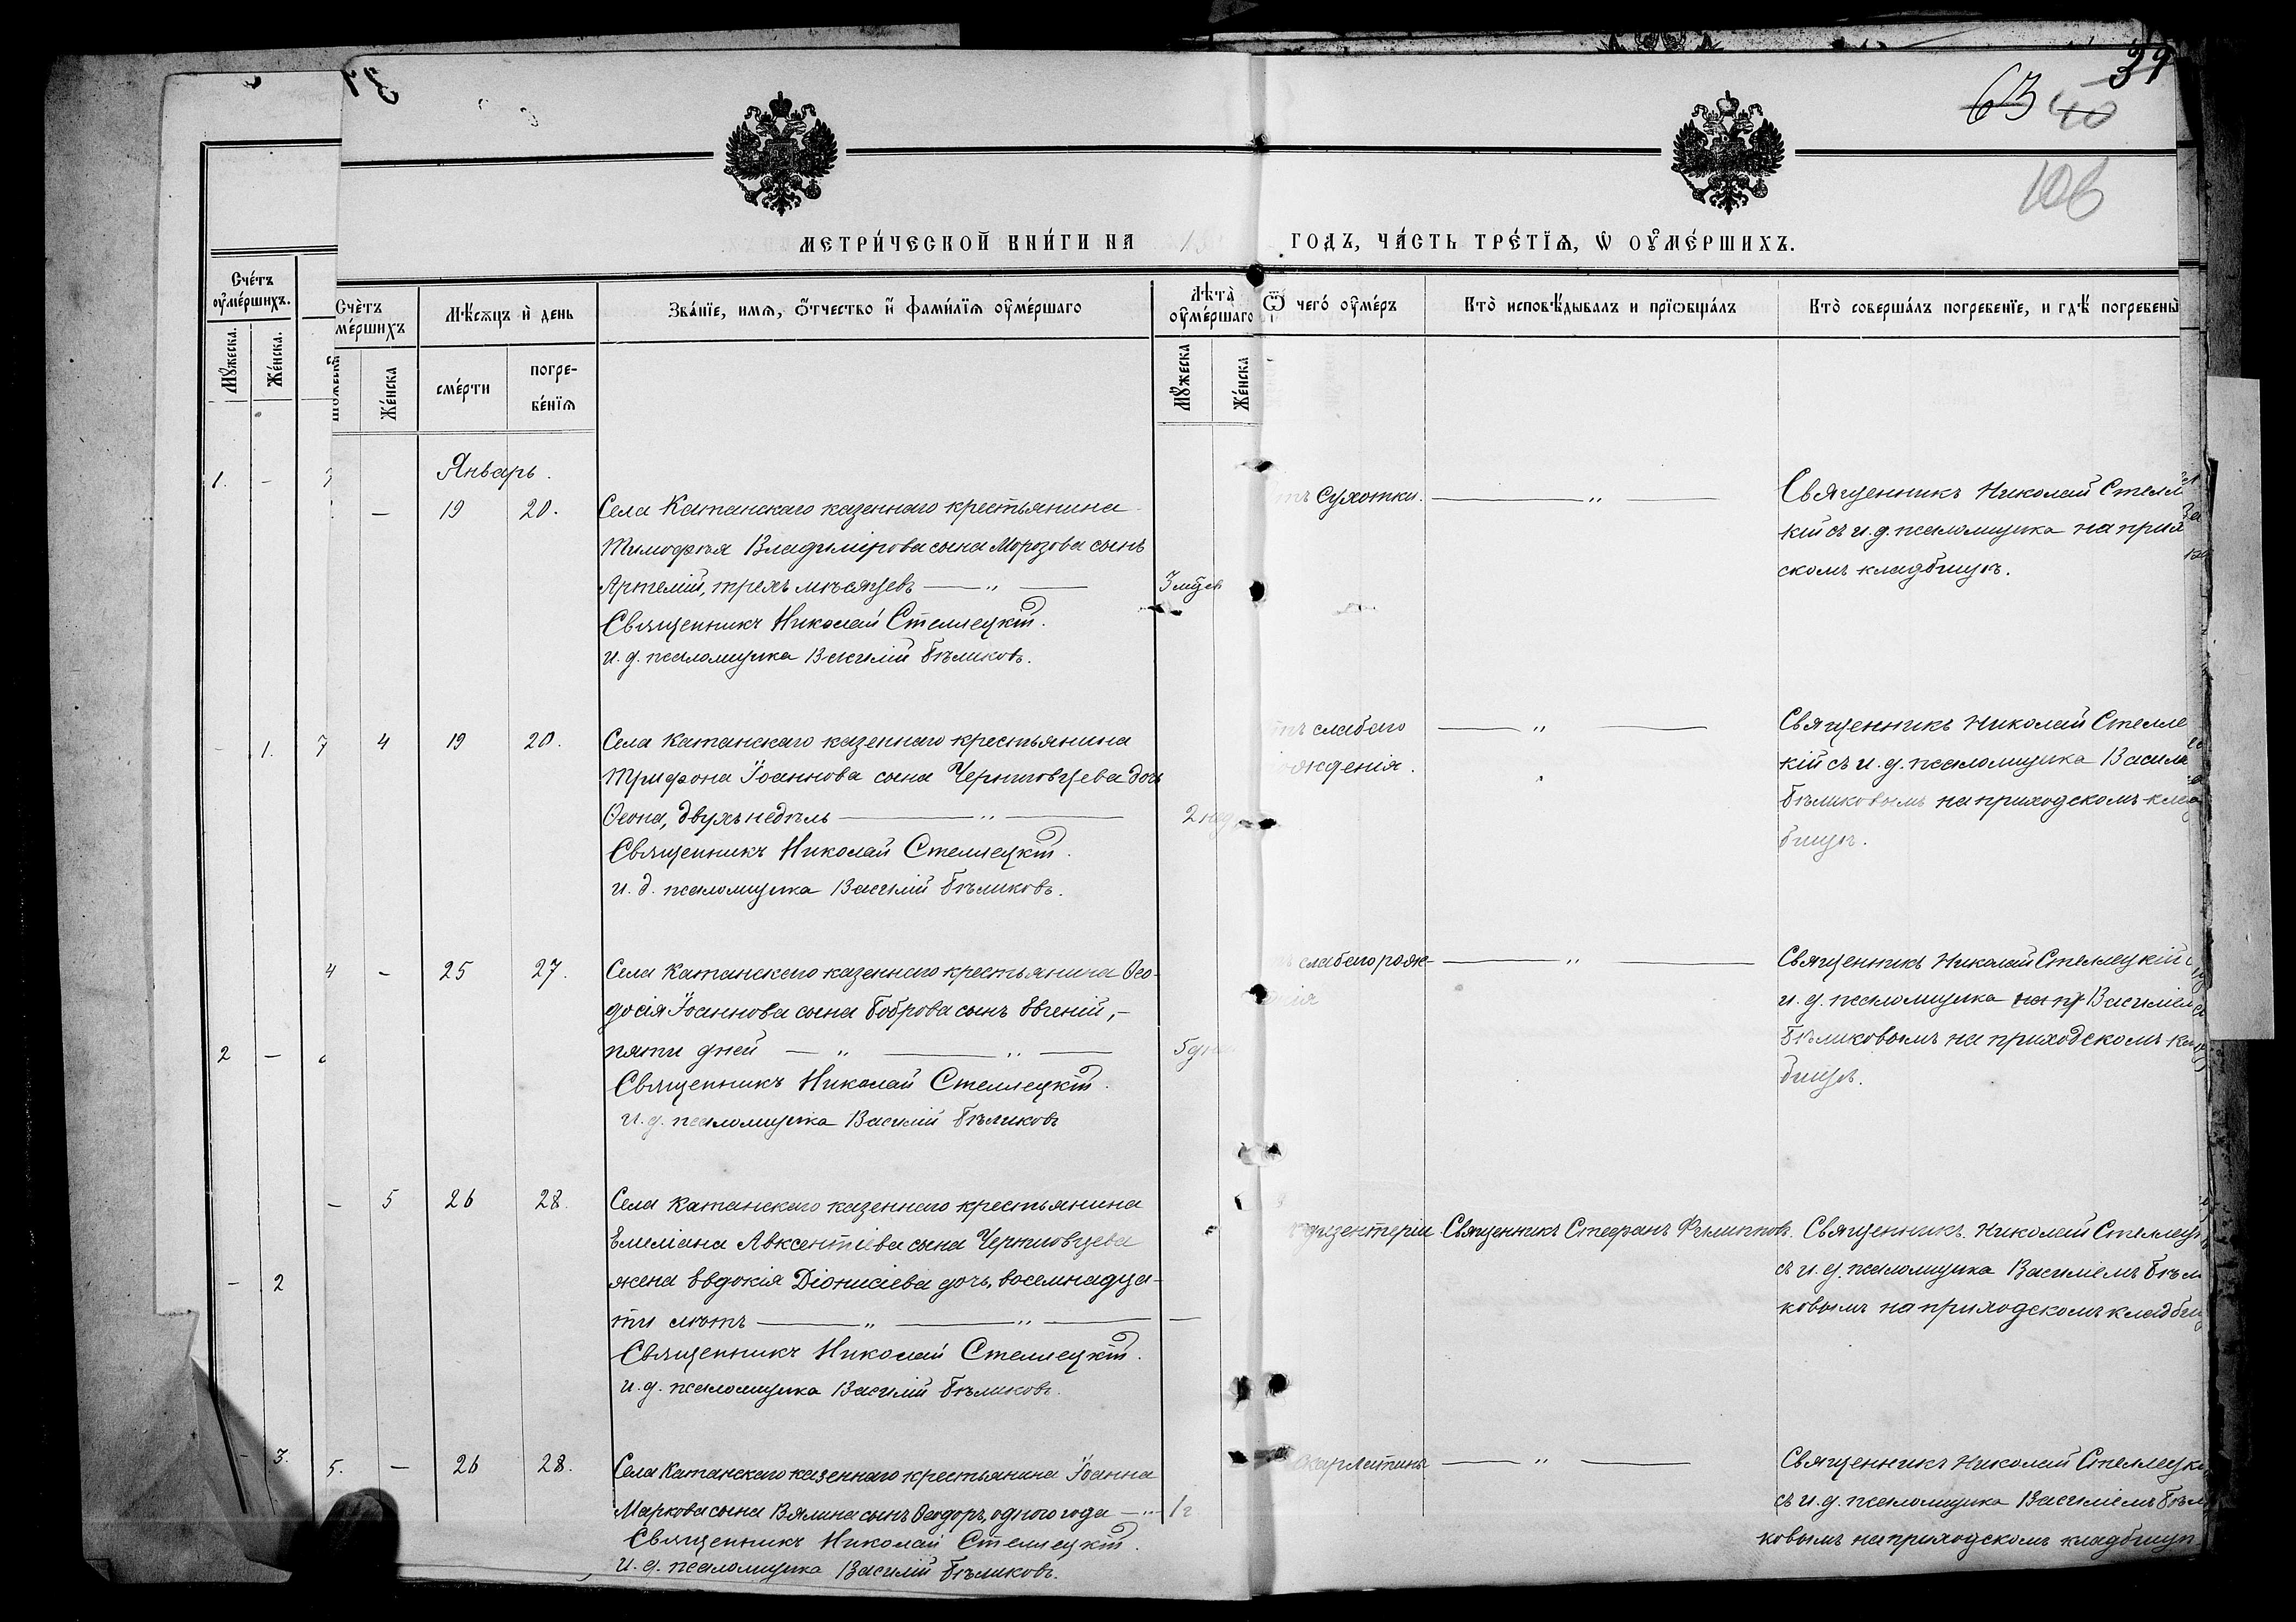 39
63 40
106
МЕТРИ́ЧЕСКОЙ КНИ́ГИ НА
ГОДЪ, ЧА́СТЬ ТРЕ́ТЇѦ, Ѡ҆ ОУ҆МЕ́РШИХЪ.
Сче́тъ оу҆ме́ршихъ.
Мꙋ́жеска.
Же́нска.
Сче́тъ
ме́ршихъ
Же́нска
Мѣ́сѧцъ и҆ день
сме́рти
погре-
бе́нїѧ
Зва́нїе, имѧ, ѻ҆́тчество и҆ фами́лїѧ оу҆ме́ршаго
Лѣта̀
оу҆ме́ршаго
Мꙋ́жеска
Же́нска
Ѿ чегѡ̀ оу҆ме́ръ
Кто̀ исповѣ́дывалъ и прїѡбща́лъ
Кто̀ соверша́лъ погребе́нїе, и гдѣ̀ погребены̀
1. -
Январь.
- 19 20. Села Катанскаго казеннаго крестьянина
Тимофея Владимірова сына Морозова сынъ
Артемій, трехъ мѣсяцевъ — " —
Священникъ Николай Стеллецкій.
И. д. псаломщика Василій Бѣликовъ.
3 мцев
Сухотки. — " —
Священникъ Николай Стелл
кій съ и. д. псаломщика на прих
скомъ кладбищѣ.
1. 4 19 20. Села Катанскаго казеннаго крестьянина
Трифона Іоаннова сына Черниговцева дочь
Ѳеона, двухъ недѣль — " —
Священникъ Николай Стеллецкій.
И. д. псаломщика Василій Бѣликовъ.
2 нед
слабаго — " —
ожденія.
Священникъ Николай Стелле
кій съ и. д. псаломщика Васил
Бѣликовымъ на приходскомъ клад
бищѣ.
4 - 25 27. Села Катанскаго казеннаго крестьянина Ѳео-
досія Іоаннова сына Боброва сынъ Евгеній, –
пяти дней — " — " —
Священникъ Николай Стеллецкій.
И. д. псаломщика Василій Бѣликовъ
2 -
5 дн
слабаго рож- — " —
нія
Священникъ Николай Стеллецкій
и. д. псаломщика на пр Василіем
Бѣликовымъ на приходскомъ кл
бищѣ.
- 5 26 28. Села Катанскаго казеннаго крестьянина
Емеліана Авксентіева сына Черниговцева
жена Евдокія Діонисіева дочь, восемнадца-
ти лѣтъ — " — " — —
Священникъ Николай Стеллецкій.
И. д. псаломщика Василій Бѣликовъ.
- 2
дизентеріи Священникъ Стефанъ Филипповъ.
Священникъ Николай Стеллецк
съ и. д. псаломщика Василіемъ Бѣли
ковымъ на приходскомъ кладбищ
- 3. 5. - 26 28. Села Катанскаго казеннаго крестьянина Іоанна
Маркова сына Вялина сынъ Ѳеодоръ, одного года — "
Священникъ Николай Стеллецкій.
И. д. псаломщика Василій Бѣликовъ.
1 г
скарлатина — " —
Священникъ Николай Стеллецкі
съ и. д. псаломщика Василіемъ Бѣл
ковымъ на приходскомъ кладбищѣ